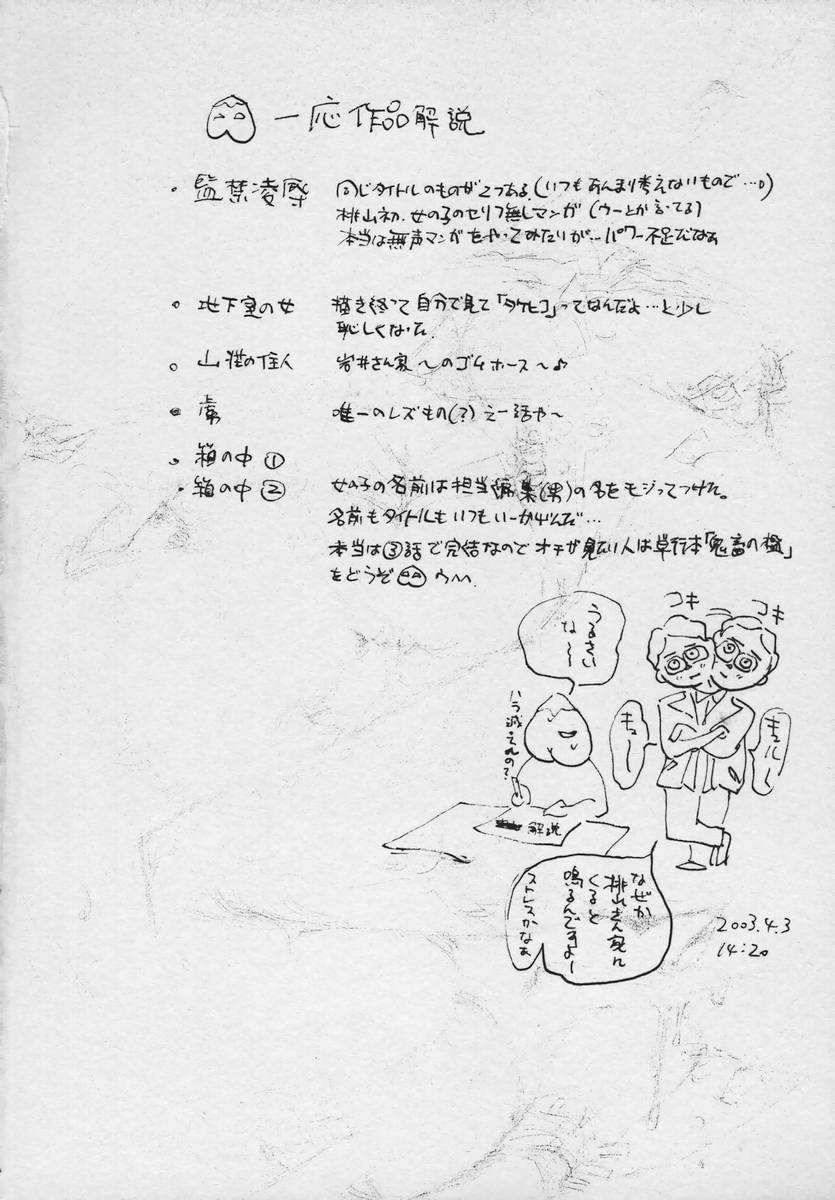 一応作品解説
・監禁凌辱
同じタイトルのものが2つある。(いつもあんまり考えないもので…。)
桃山初、女の子のセリフ無しマンガ(ウーとか言ってる)
本当は無声マンガをやってみたりが…パワー不足だなぁ
・地下室の女
描き終って自分で見て「タケヒコ」ってなんだよ…と少し
恥しくなった
・山荘の住人
岩井さん家〜のゴムホース〜♪
・虜
唯一のレズもの(?)えー話や〜
・箱の中①
・箱の中②
女の子の名前は担当編集(男)の名をモジってつけた。
名前もタイトルもいつもいーかげんだ…
本当は③話で完結なのでオチが見たい人は単行本「鬼畜の檻」
をどうぞ
うるさい
な〜〜
ハラ減ってんの?
コキ
コキ
キュー
キュルル〜
解説
なぜか
桃山さん家に
くると
鳴るんですよー
ストレスかなぁ
2003.4.3
14:20